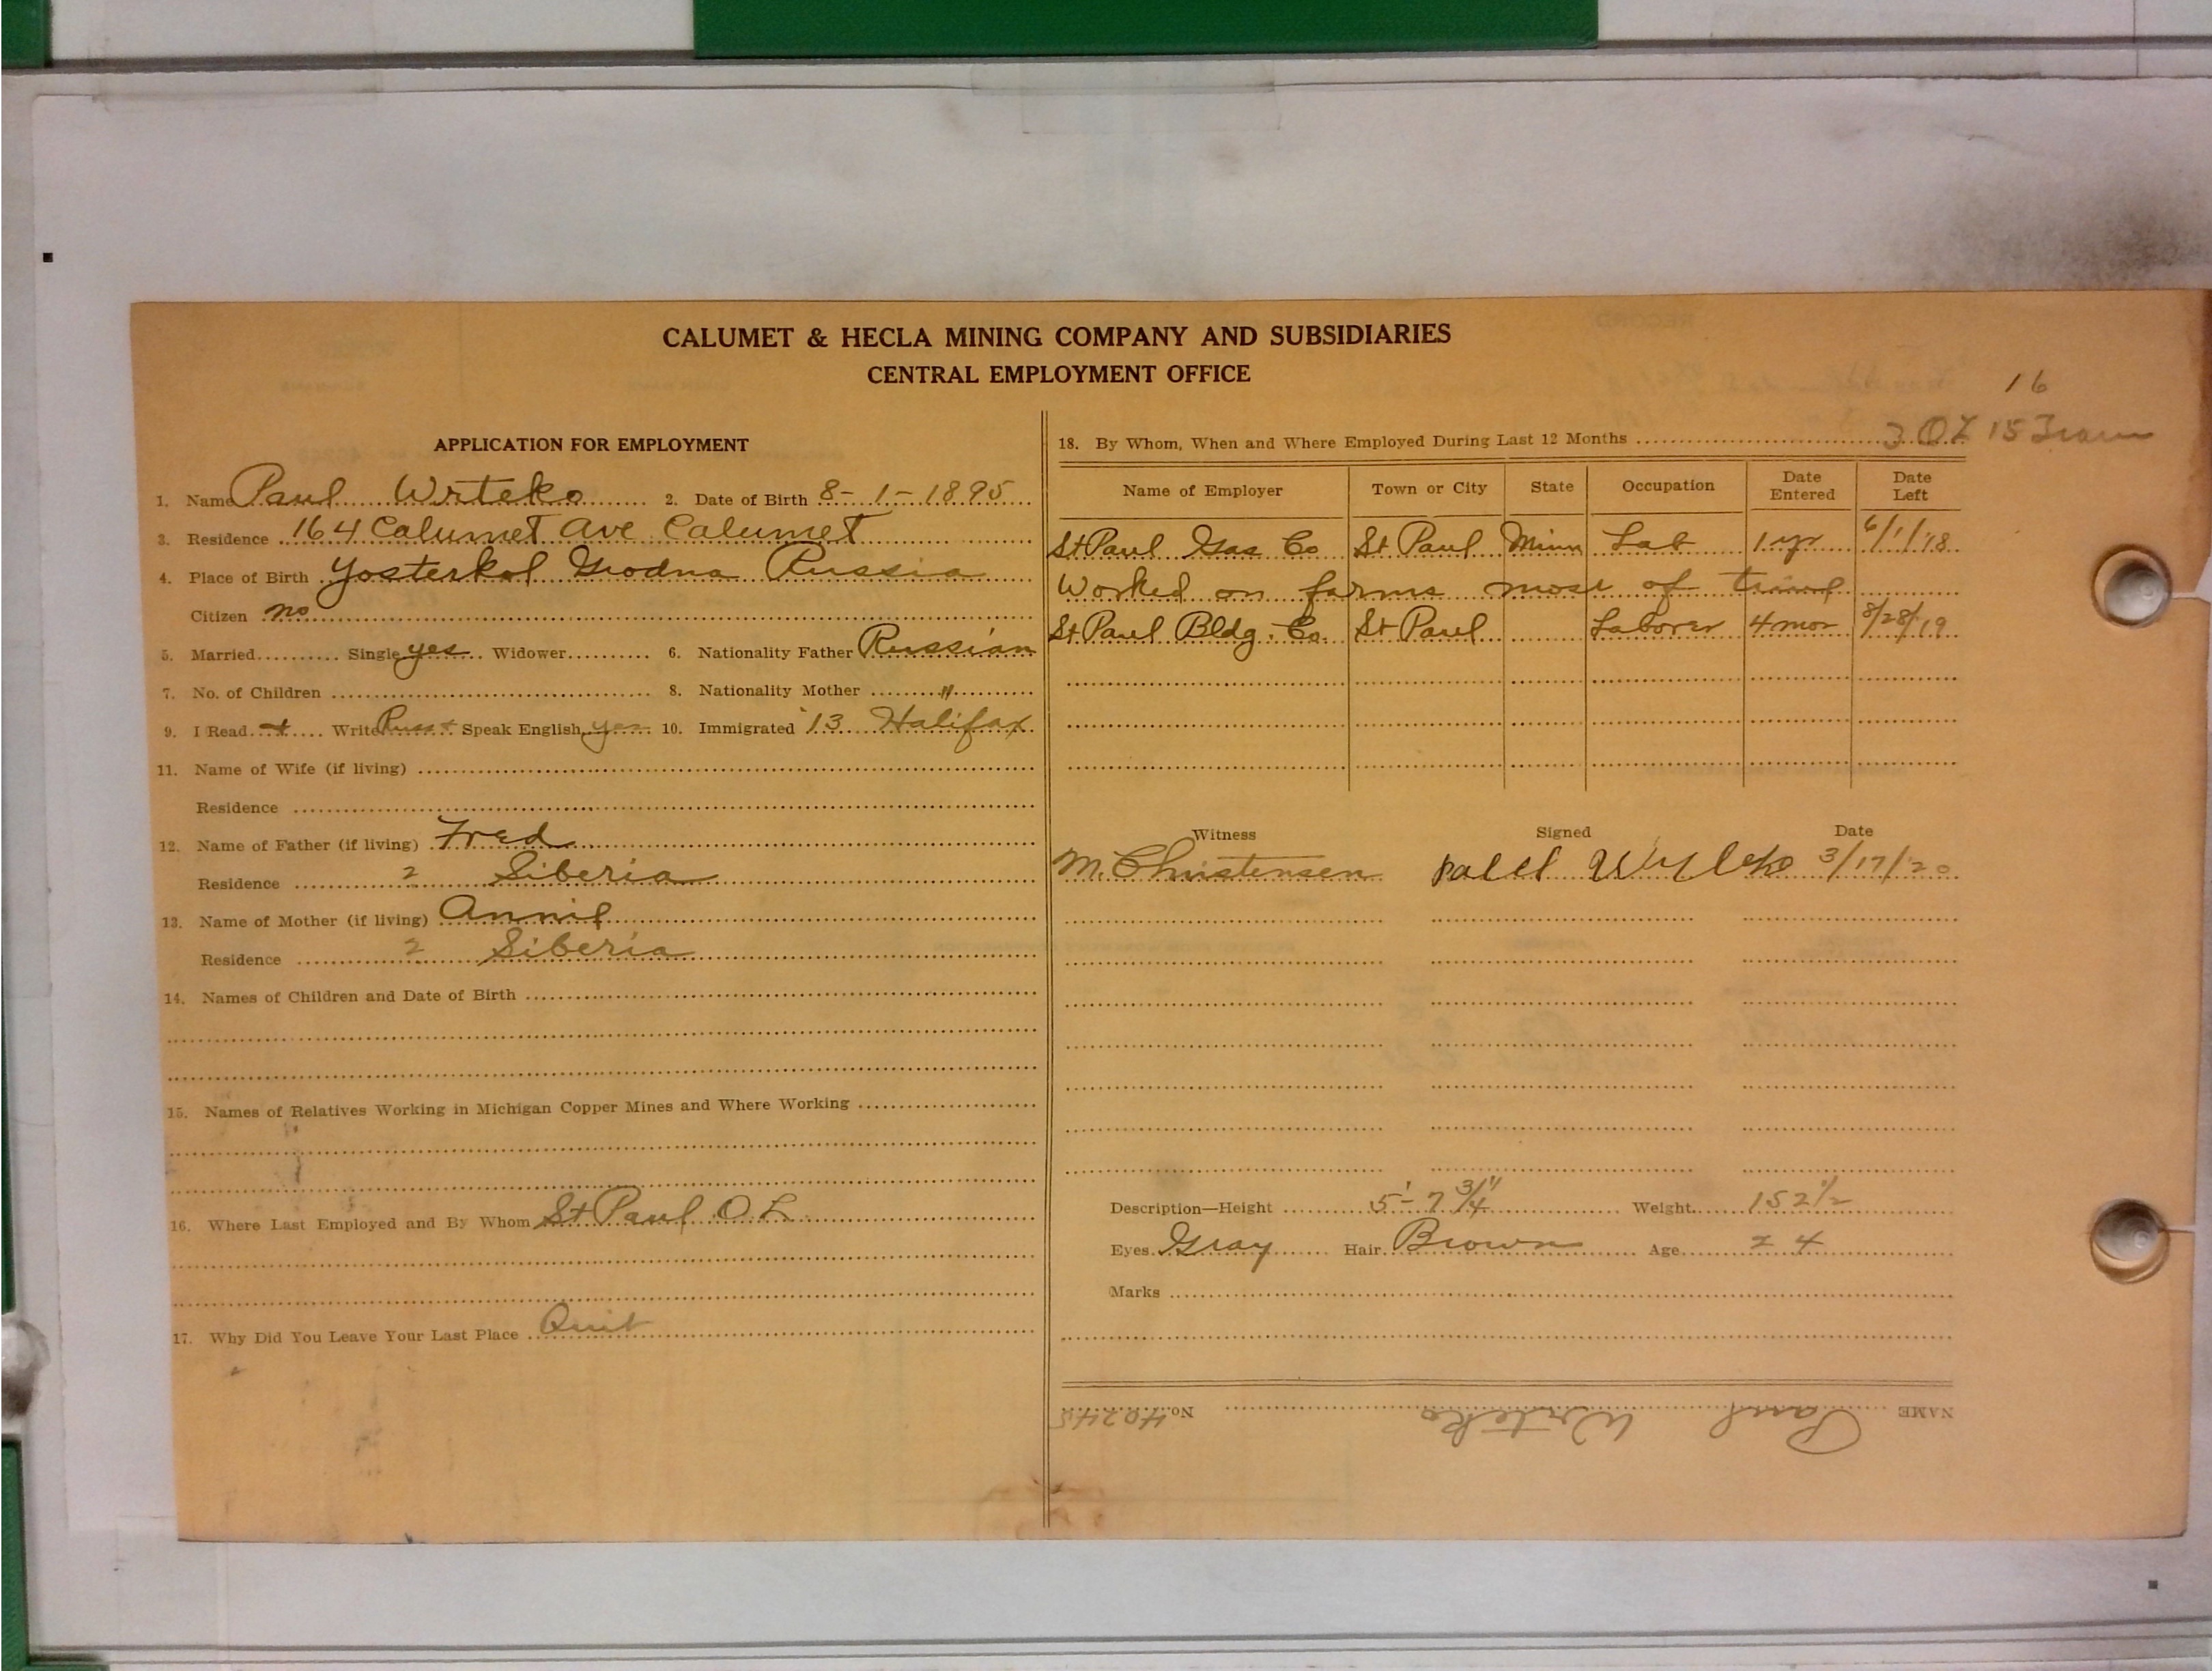 CALUMET & HECLA MINING COMPANY AND SUBSIDIARIES
CENTRAL EMPLOYMENT OFFICE
16
APPLICATION FOR EMPLOYMENT
1. Name Paul Writeko 2. Date of Birth 8-1-1895
3. Residence 164 Calumet Ave Calumet
4. Place of Birth Yosterkol Grodna Russia
Citizen no
5. Married Single yes Widower 6. Nationality Father Russian
7. No. of Children 8. Nationality Mother "
9. I Read + Write Russ + Speak English yes 10. Immigrated '13 Halifax
11. Name of Wife (if living)
Residence
12. Name of Father (if living) Fred
Residence ? Siberia
13. Name of Mother (if living) Annie
Residence ? Siberia
14. Names of Children and Date of Birth
15. Names of Relatives Working in Michigan Copper Mines and Where Working
16. Where Last Employed and By Whom St Paul O L
17. Why Did You Leave Your Last Place Quit
18. By Whom, When and Where Employed During Last 12 Months 3 15 Tram
Name of Employer Town or City State Occupation Date Entered Date Left
St Paul Gas Co St Paul Minn Lab 1 yr 6/1/18
Worked on farms most of time
St Paul Bldg. Co. St Paul Laborer 4 mos 8/28/19
Witness Signed Date
M. Christensen 3/17/20
Description—Height 5'-7 3/4" Weight 152 1/2
Eyes Gray Hair Brown Age 24
Marks
NAME Paul Writeko No. 40245